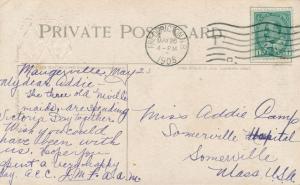 PRIVATE POST CARD
FREDERICTON
MAY 26
4-PM
1905
Maugerville, May 23
My dear Addie.
The three old Neville
maids, are spending
Victoria Day together.
Wish you could
have been with
us. Hope you
spent a very happy
day. A.C.C. J.M.F. A.A.M.
Miss Addie Camp
Somerville Hospital
Somerville
Mass. U.S.A.